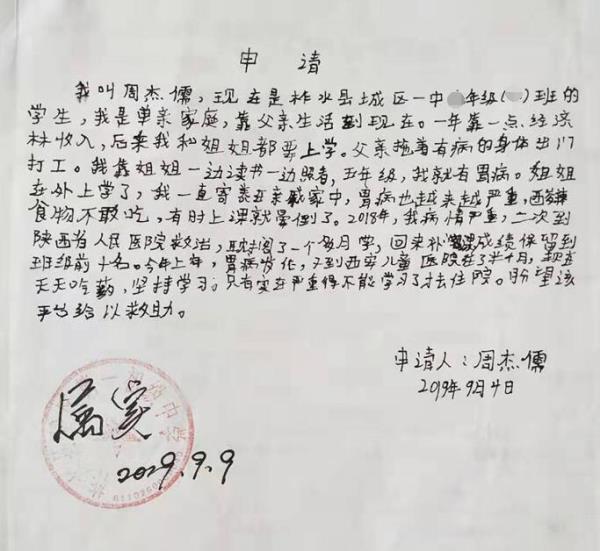 申 请
我叫周杰儒,现在是柞水县城区一中 年级( )班的
学生,我是单亲家庭,靠父亲生活到现在。一年靠一点经济
林收入,后来我和姐姐都要上学。父亲拖着有病的身体出门
打工。我靠姐姐一边读书一边照看,五年级,我就有胃病。姐姐
在外上学了,我一直寄养在亲戚家中,胃病也越来越严重,西辣
食物不敢吃,有时上课就晕倒了。2018年,我病情严重,二次到
陕西省人民医院救治,耽搁了一个多月学,回来补课成绩保留到
班级前十名。今年上年,胃病发作,又到西安儿童医院住了半个月,现在
天天吃药,坚持学习。只有实在严重得不能学习了才去住院。盼望该
平台给以救助。
申请人:周杰儒
2019年9月4日
属实
2029.9.9